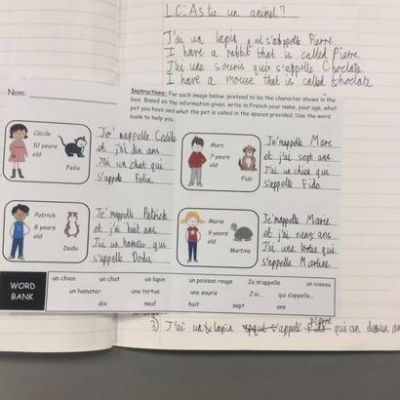 LC: As tu un animal?
J'ai un lapin qui s'appelle Pierre.
I have a rabbit that is called Pierre.
J'ai une souris qui s'appelle Choclate.
I have a mouse that is called Choclate.
Nom:
Instructions: For each image below, pretend to be the character shown in the
box. Based on the information given, write in French your name, your age, what
pet you have and what the pet is called in the spaces provided. Use the word
bank to help you.
Cécile
10 years
old
Felix
Je m'appelle Cécile
et j'ai dix ans.
J'ai un chat qui
s'appelle Felix.
Marc
7 years
old
Fido
Je m'appelle Marc
et j'ai sept ans
J'ai un chien qui
s'appelle Fido.
Patrick
8 years
old
Dodu
Je m'appelle Patrick
et j'ai huit ans.
J'ai un hamster qui
s'appelle Dodu.
Marie
9 years
old
Martine
Je m'appelle Marie
et j'ai neuf ans.
J'ai une tortue qui
s'appelle Martine.
WORD
BANK
un chien un chat un lapin un poisson rouge Je m'appelle un oiseau
un hamster une tortue une souris J'ai... qui s'appelle...
dix neuf huit sept ans
pierre
3) J'ai un lapin s'appelle Fido qui